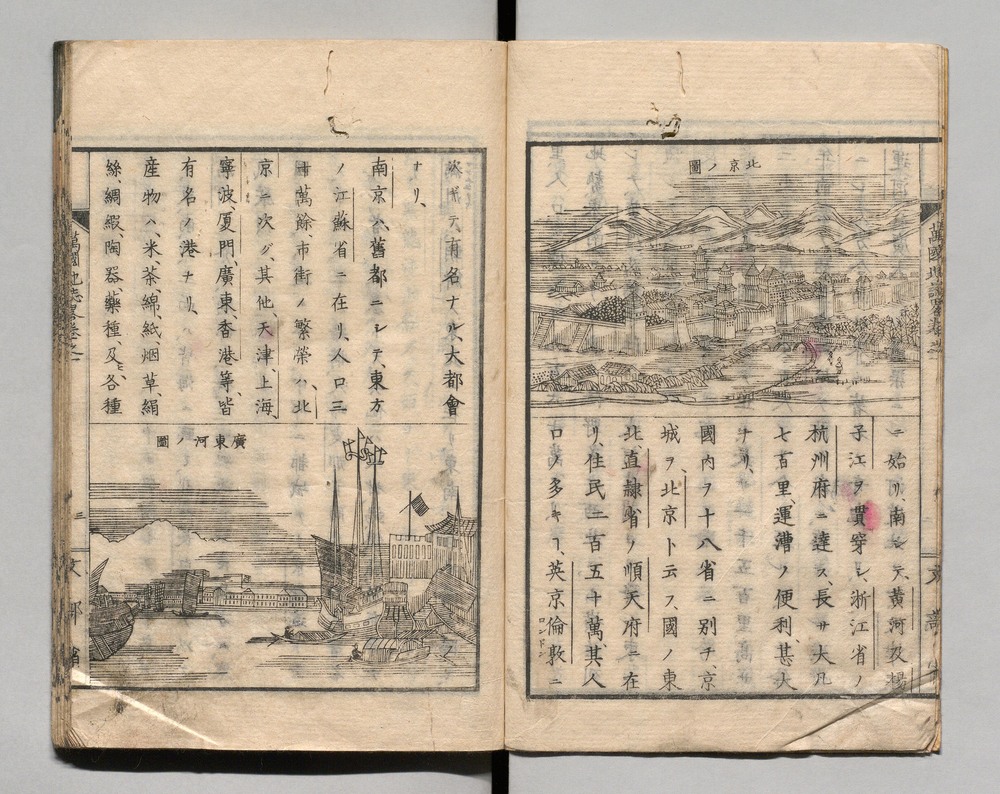 北京ノ圖
ニ始リ、南シテ、黄河及揚
子江ヲ貫穿シ、浙江省ノ
杭州府ニ達ス、長サ大凡
七百里、運漕ノ便利、甚大
ナリ、
國内ヲ十八省ニ別チ、京
城ヲ、北京ト云フ、國ノ東
北、直隷省ノ順天府ニ在
リ、住民二百五十萬、其人
口ノ多キヿ、英京倫敦ニ
ロンドン
ナリ、
南京ハ、舊都ニシテ、東方
ノ江蘇省ニ在リ、人口三
十萬餘、市街ノ繁榮ハ、北
京ニ次グ、其他、天津、上海、
寧波、厦門、廣東、香港等、皆
有名ノ港ナリ、
産物ハ、米、茶、綿、紙、烟草、絹
絲、綢緞、陶器、藥種、及ヒ、各種
廣東河ノ圖
文部省